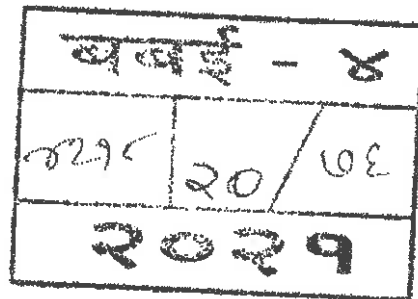 बबई - ४
२० / ७६
२०२१